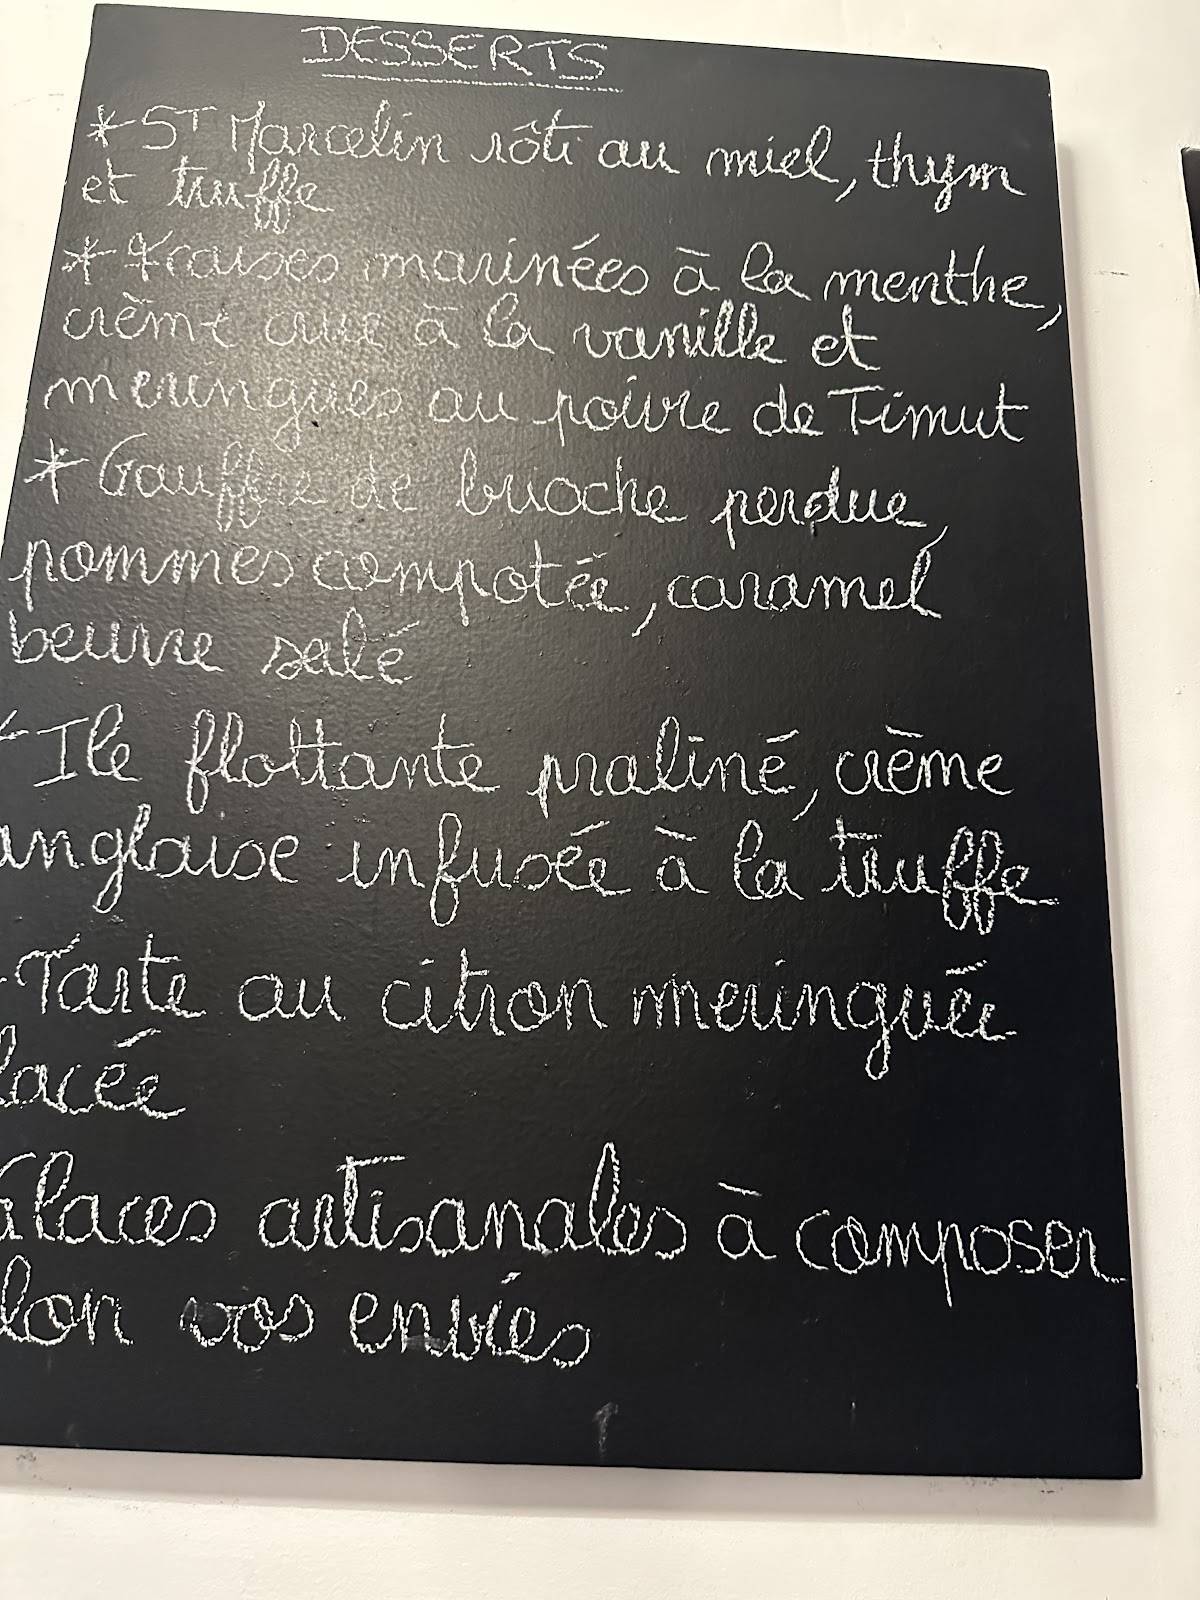 DESSERTS
* ST Marcelin rôti au miel, thym
et truffe
* Fraises marinées à la menthe,
crème crue à la vanille et
meringues au poivre de Timut
* Gauffre de brioche perdue,
pommes compotée, caramel
beurre salé
* Ile flottante praliné, crème
anglaise infusée à la truffe
- Tarte au citron meringuée
lacée
Glaces artisanales à composer
lon vos envies